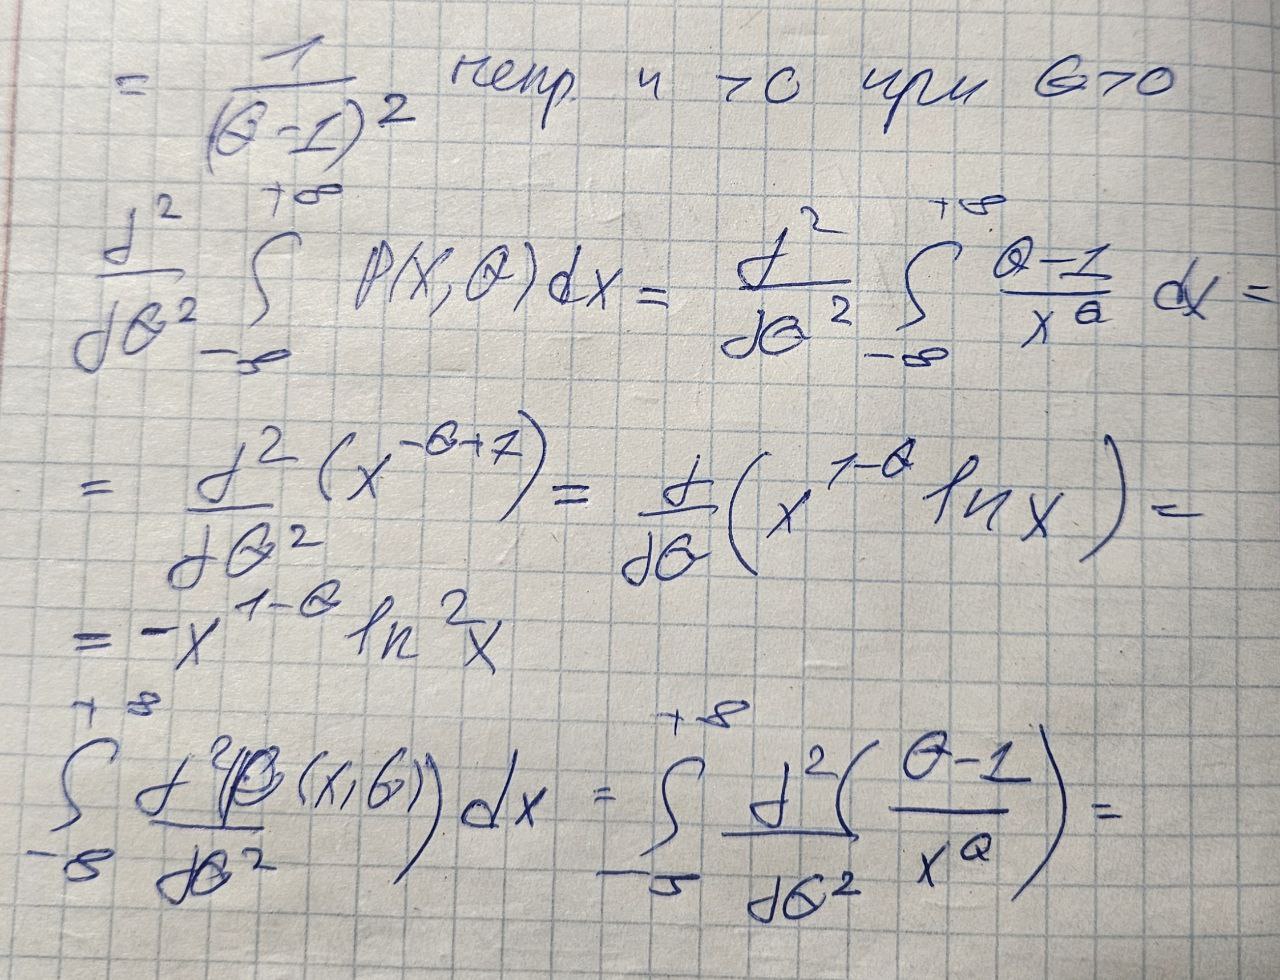 = 1/(θ-1)² непр. и >0 при θ>0
d²/dθ² ∫_{-∞}^{+∞} P(x,θ)dx = d²/dθ² ∫_{-∞}^{+∞} (θ-1)/x^θ dx =
= d²/dθ² (x^{-θ+1}) = d/dθ (x^{1-θ} ln x) =
= -x^{1-θ} ln²x
∫_{-∞}^{+∞} d²(P(x,θ))/dθ² dx = ∫_{-∞}^{+∞} d²/dθ² ((θ-1)/x^θ) =